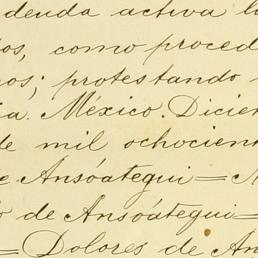 deuda activa l
os, como proced
os; protestando
ia. México. Dicien
de mil ochocien
e Ansóategui=
o de Ansóategui=
=Dolores de An